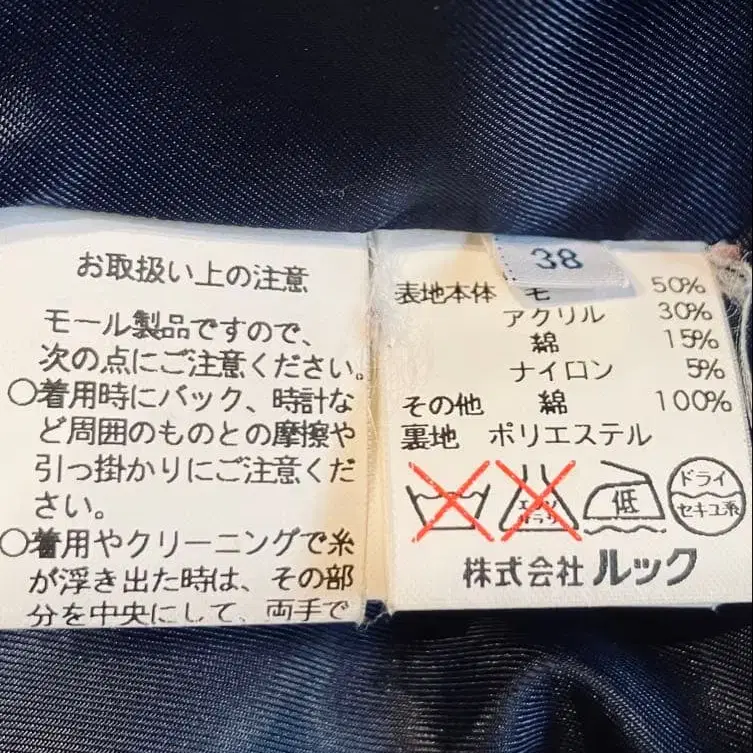 お取扱い上の注意
モール製品ですので、
次の点にご注意ください。
○着用時にバック、時計な
ど周囲のものとの摩擦や
引っ掛かりにご注意くだ
さい。
○着用やクリーニングで糸
が浮き出た時は、その部
分を中央にして、両手で
38
表地本体 毛 50%
アクリル 30%
綿 15%
ナイロン 5%
その他 綿 100%
裏地 ポリエステル
低
ドライ
セキユ系
株式会社 ルック